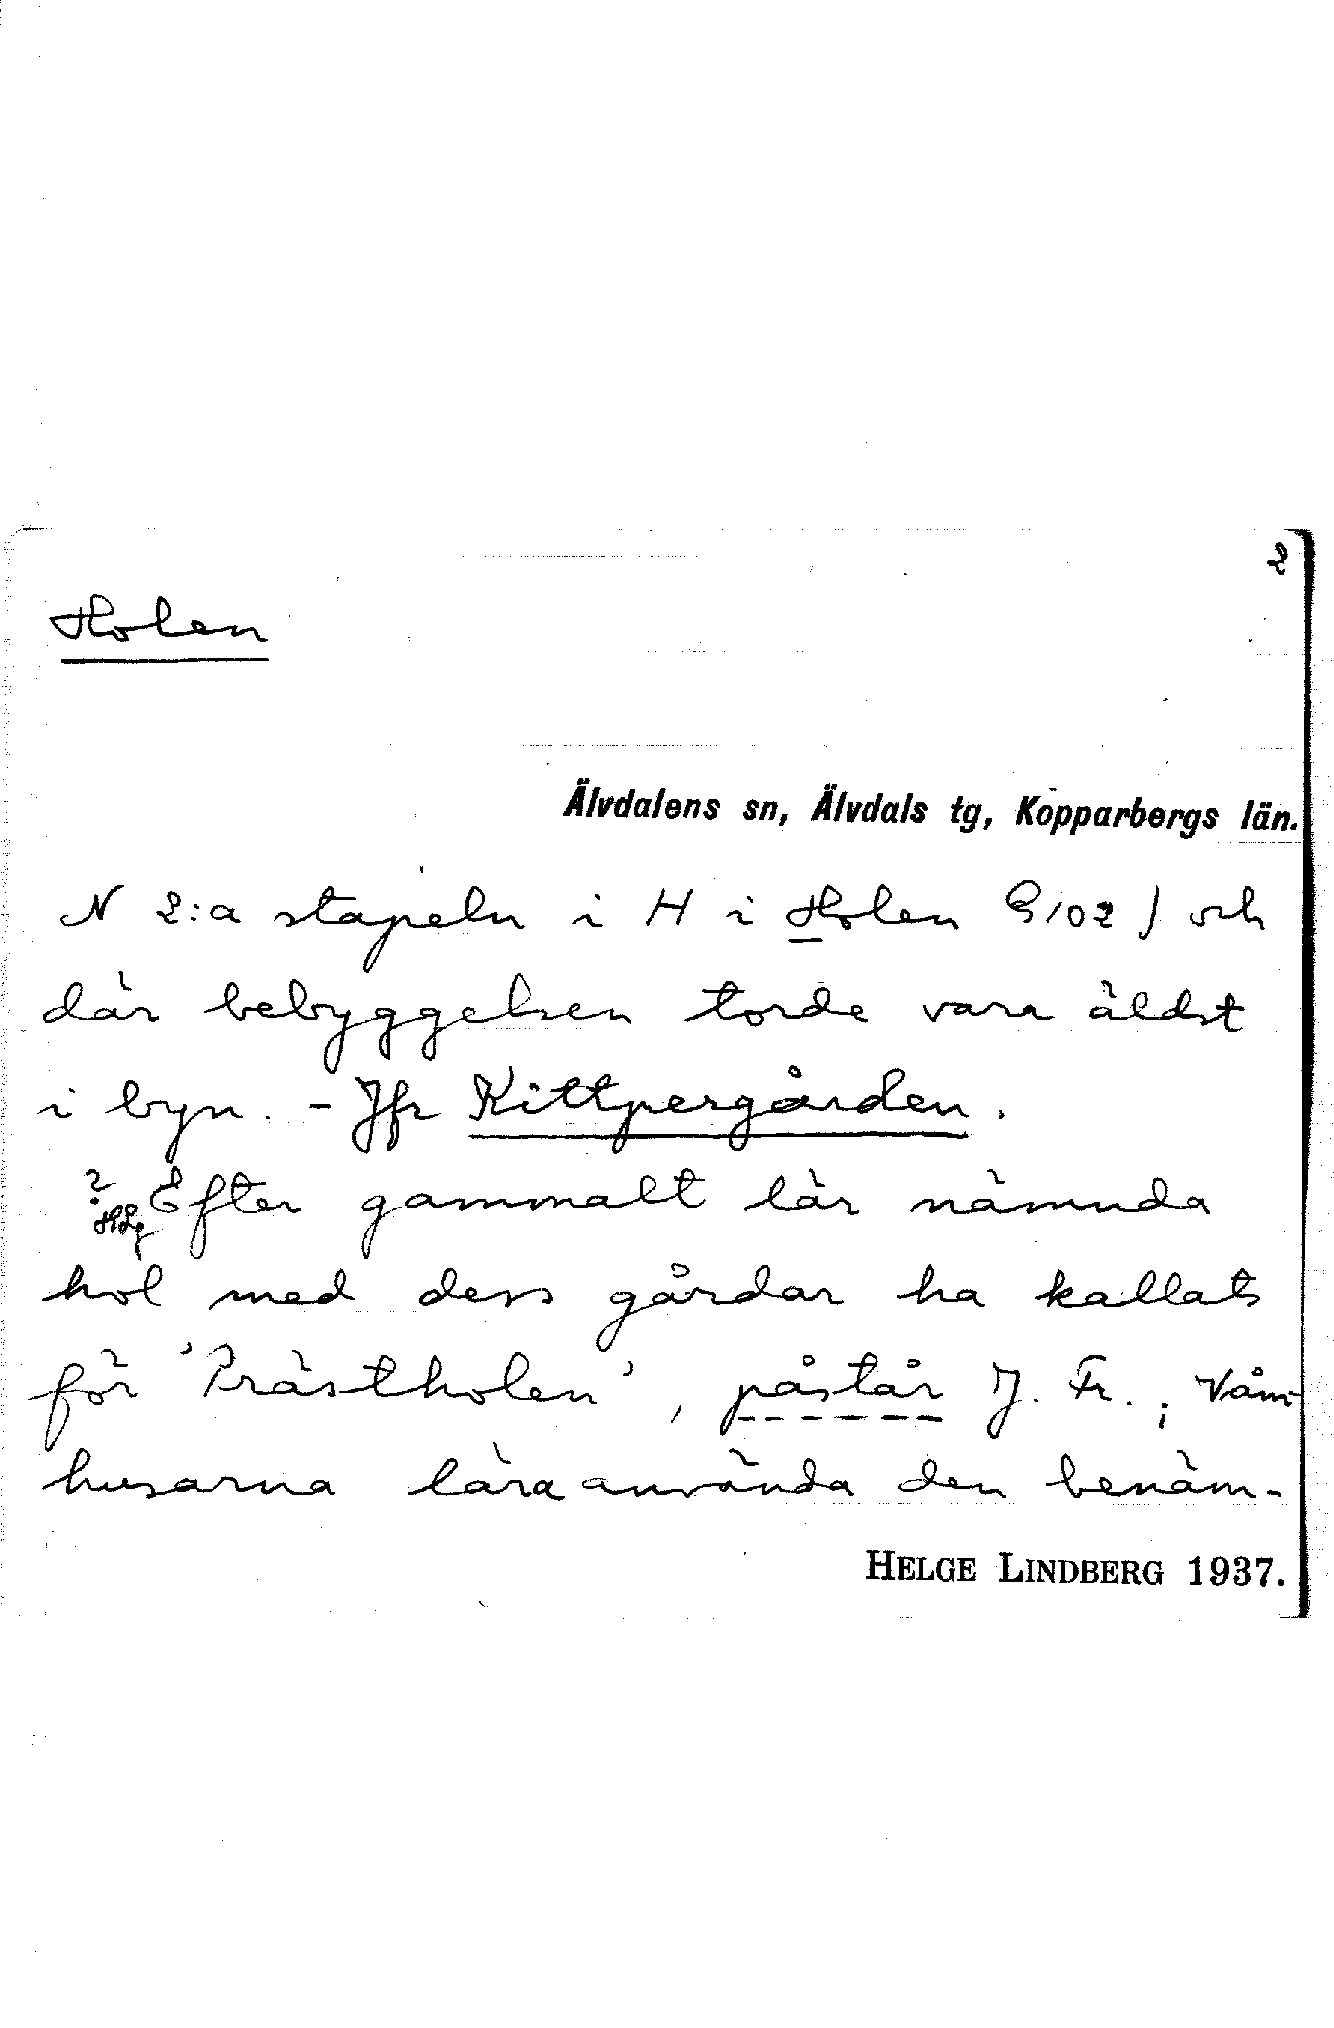 2
Holen
Älvdalens sn, Älvdals tg, Kopparbergs län.
N 2:a stapeln i H i Holen G102) och
där bebyggelsen torde vara äldst
i byn. - Jfr Kittpergården.
? HLg Efter gammalt lär nämnda
hol med dess gårdar ha kallats
för 'Prästholen', påstår J. Fr.; Våm-
husarna lära använda den benäm-
HELGE LINDBERG 1937.